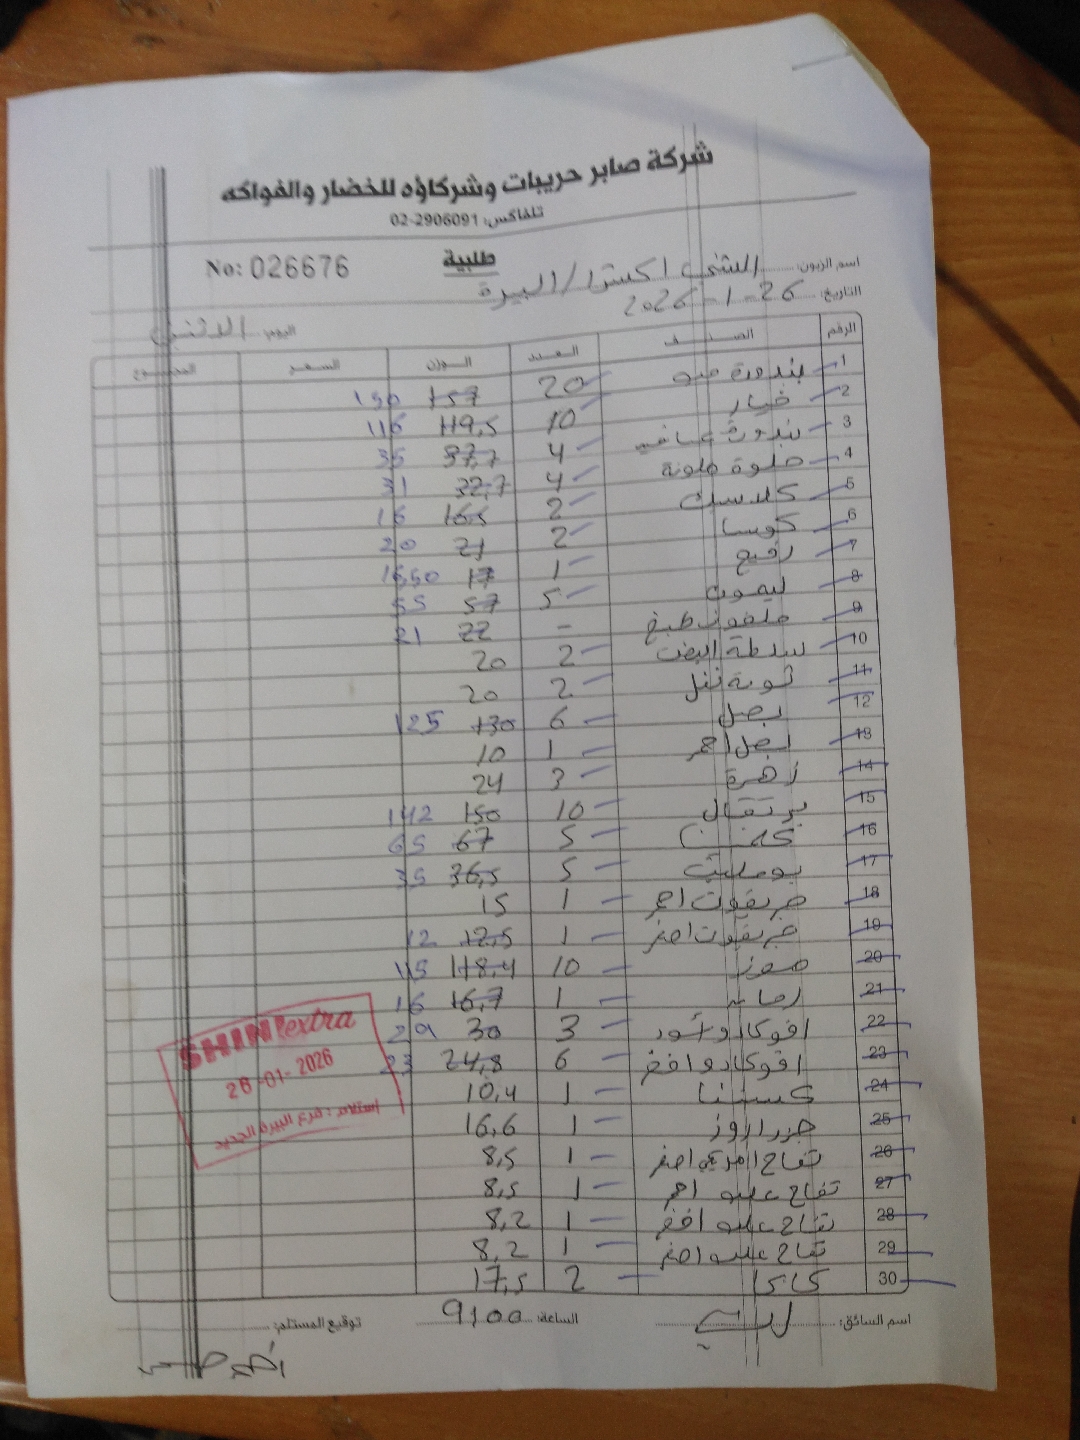 شركة صابر حريبات وشركاؤه للخضار والفواكه
تلفاكس: 02-2906091
No: 026676
طلبية
اسم الزبون: الشني اكسترا / البيرة
التاريخ: 26-1-2026
اليوم: الاثنين
الرقم الصنف العدد الوزن السعر المجموع
1 بندورة 20 157 150
2 خيار 10 119,5 116
3 بندورة 4 37,7 35
4 حلوة ملونة 4 32,7 31
5 كلاسيك 2 16,5 16
6 كوسا 2 21 20
7 رفيع 1 17 16,50
8 ليمون 5 57 55
9 ملفوف طبخ - 22 21
10 سلطة 2 20
11 2 20
12 بصل 6 130 125
13 بصل احمر 1 10
14 زهرة 3 24
15 برتقال 10 150 142
16 5 67 65
17 بوملیت 5 36,5 35
18 جريفوت احمر 1 15
19 جريفوت اصفر 1 12,5 12
20 موز 10 118,4 115
21 رمان 1 16,7 16
22 افوكادو 3 30 29
23 افوكادو اخضر 6 24,8 23
24 كستنا 1 10,4
25 جزر 1 16,6
26 تفاح امريكي اصفر 1 8,5
27 تفاح احمر 1 8,5
28 تفاح اخضر 1 8,2
29 تفاح اصفر 1 8,2
30 كاكا 2 17,5
SHINI extra
26-01-2026
استلام: فرع البيرة الجديد
اسم السائق:
الساعة: 9:00
توقيع المستلم: